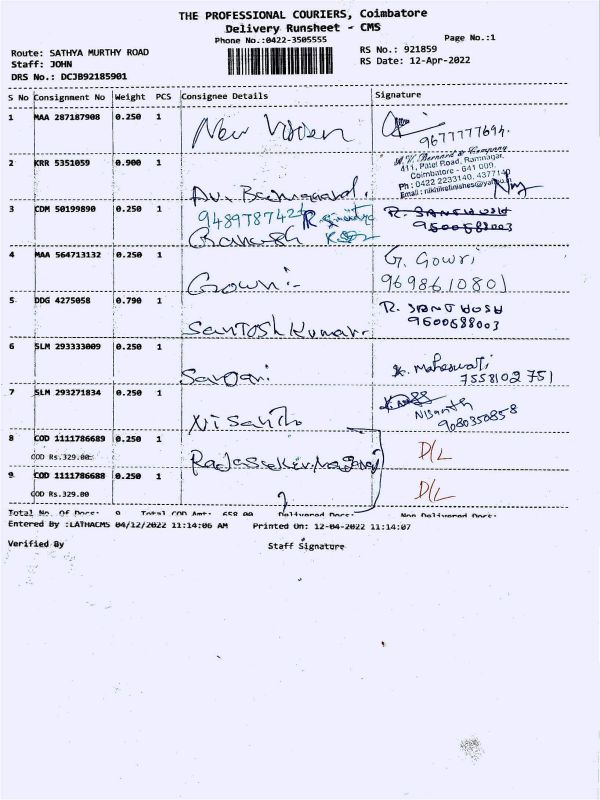 THE PROFESSIONAL COURIERS, Coimbatore
Delivery Runsheet - CMS
Phone No.:0422-3505555
Page No.:1
Route: SATHYA MURTHY ROAD
RS No.: 921859
Staff: JOHN
RS Date: 12-Apr-2022
DRS No.: DCJB92185901
S No Consignment No Weight PCS Consignee Details Signature
1 MAA 287187908 0.250 1
9677777694.
2 KRR 5351059 0.900 1
A.V. Bernard & Company
411, Patel Road, Ramnagar,
Coimbatore - 641 009.
Ph : 0422 2233140, 4377140
Email : nikhilrefinishes@yahoo.in
3 CDM 50199890 0.250 1 R. SANTHOSH
9489787424
9500588003
4 MAA 564713132 0.250 1 G. Gowri
Gowri :- 9698610801
5 DDG 4275058 0.790 1 R. SANTHOSH
Santosh Kumar. 9600688003
6 SLM 293333009 0.250 1
K. Maheswari
7558102751
7 SLM 293271834 0.250 1
Nisanth Nisanth
9080350858
8 COD 1111786689 0.250 1 D/L
COD Rs.329.00
9 COD 1111786688 0.250 1 D/L
COD Rs.329.00
Total No. Of Docs: 9 Total COD Amt: 658.00 Delivered Docs: Non Delivered Docs:
Entered By :LATHACMS 04/12/2022 11:14:06 AM Printed On: 12-04-2022 11:14:07
Verified By Staff Signature